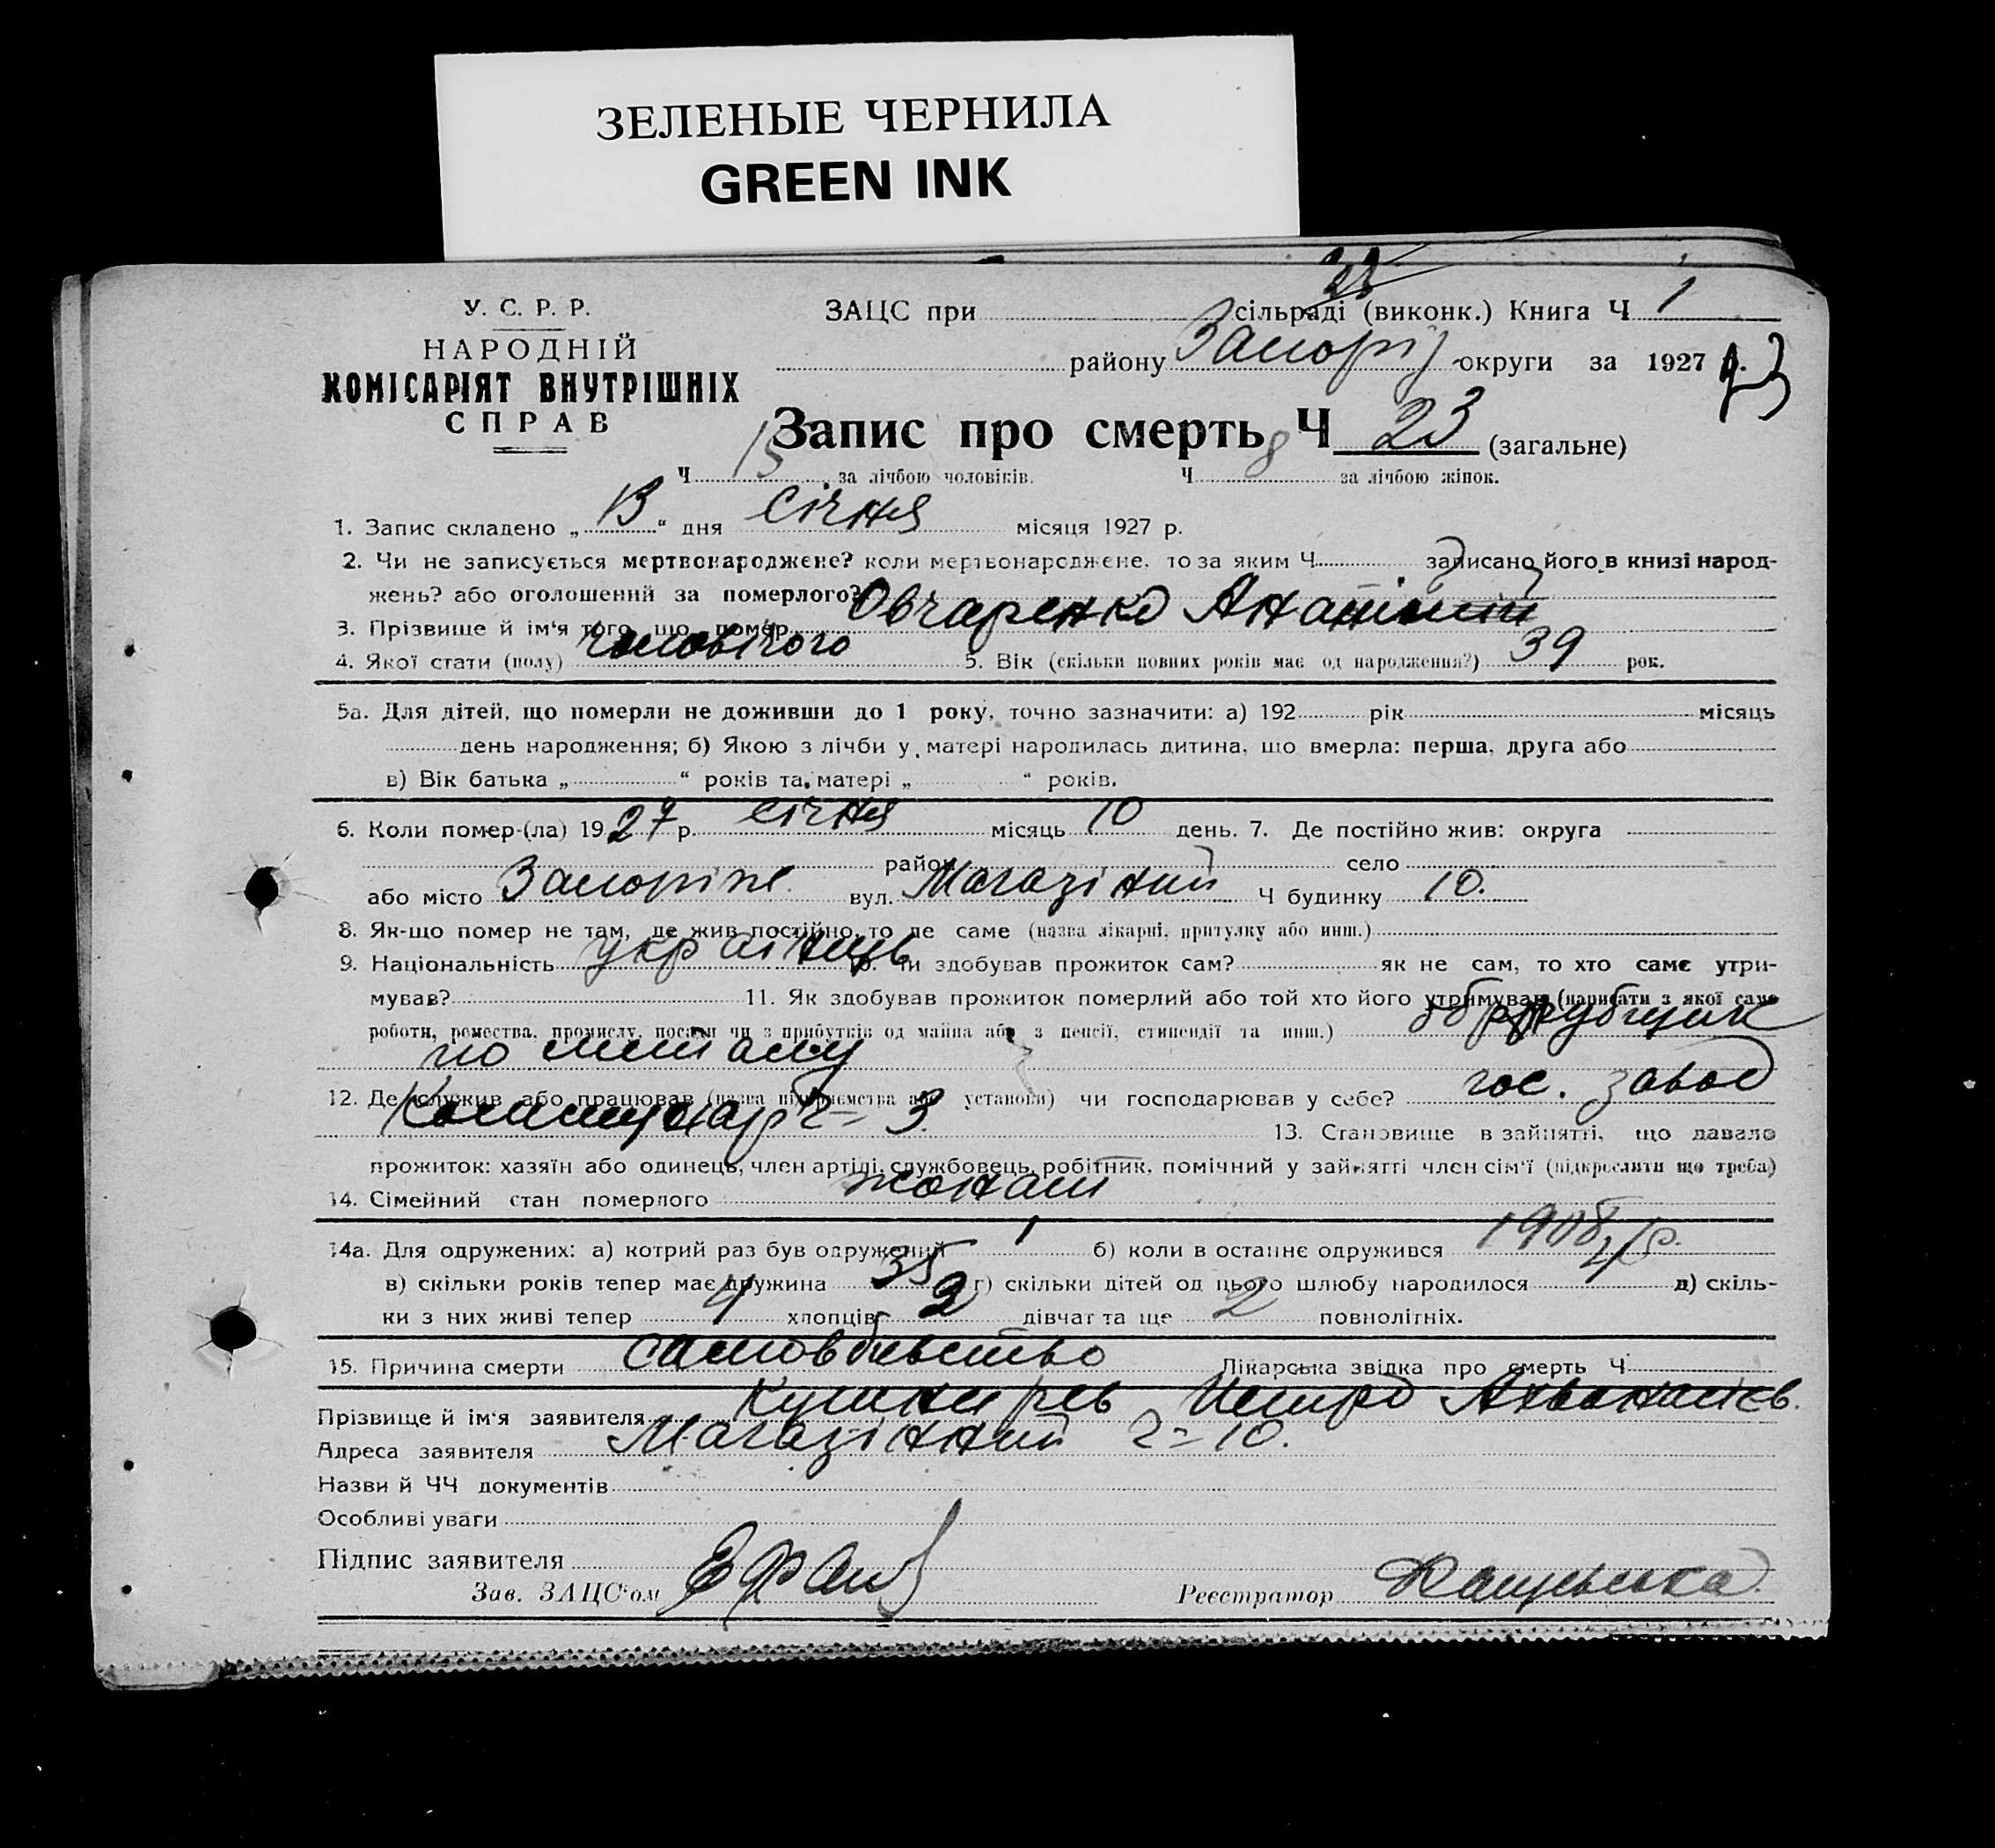 ЗЕЛЕНЫЕ ЧЕРНИЛА
GREEN INK
У. С. Р. Р.
НАРОДНІЙ
КОМІСАРІЯТ ВНУТРІШНІХ
СПРАВ
23
ЗАЦС при сільраді (виконк.) Книга Ч 1
району Запоріз округи за 1927 р.
23
Запис про смерть Ч 23 (загальне)
Ч 15 за лічбою чоловіків. Ч 8 за лічбою жінок.
1. Запис складено „ 13 “ дня Січня місяця 1927 р.
2. Чи не записується мертвонароджене? коли мертвонароджене, то за яким Ч записано його в книзі народ-
жень? або оголошений за померлого?
3. Прізвище й ім'я того, що помер Овчаренко
4. Якої стати (полу) чоловічого 5. Вік (скільки повних років має од народження?) 39 рок.
5а. Для дітей, що померли не доживши до 1 року, точно зазначити: а) 192 рік місяць
день народження; б) Якою з лічби у матері народилась дитина, що вмерла: перша, друга або
в) Вік батька „ “ років та матері „ “ років.
6. Коли помер-(ла) 1927 р. Січня місяць 10 день. 7. Де постійно жив: округа
район село
або місто Запоріже вул. Магазіний Ч будинку 10.
8. Як-що помер не там, де жив постійно, то де саме (назва лікарні, притулку або инш.)
9. Національність українець 10. Чи здобував прожиток сам? як не сам, то хто саме утри-
мував? 11. Як здобував прожиток померлий або той хто його утримував (написати з якої саме
роботи, ремества, промислу, посади чи з прибутків од майна або з пенсії, стипендії та инш.) обррубщик
по металу
12. Де служив або працював (назва підприємства або установи) чи господарював у себе? гос. завод
Комунар ч– 3. 13. Становище в зайнятті, що давало
прожиток: хазяїн або одинець, член артілі, службовець, робітник, помічний у зайнятті член сім'ї (підкреслити що треба)
14. Сімейний стан померлого жонат
14а. Для одружених: а) котрий раз був одружений 1 б) коли в останнє одружився 1908 р.
в) скільки років тепер має дружина 35 г) скільки дітей од цього шлюбу народилося 4 д) скіль-
ки з них живі тепер 4 хлопців 2 дівчат та ще 2 повнолітніх.
15. Причина смерти самовбивство Лікарська звідка про смерть Ч
Прізвище й ім'я заявителя Кушнирев Петро
Адреса заявителя Магазінний ч– 10.
Назви й ЧЧ документів
Особливі уваги
Підпис заявителя
Зав. ЗАЦС'ом Реєстратор